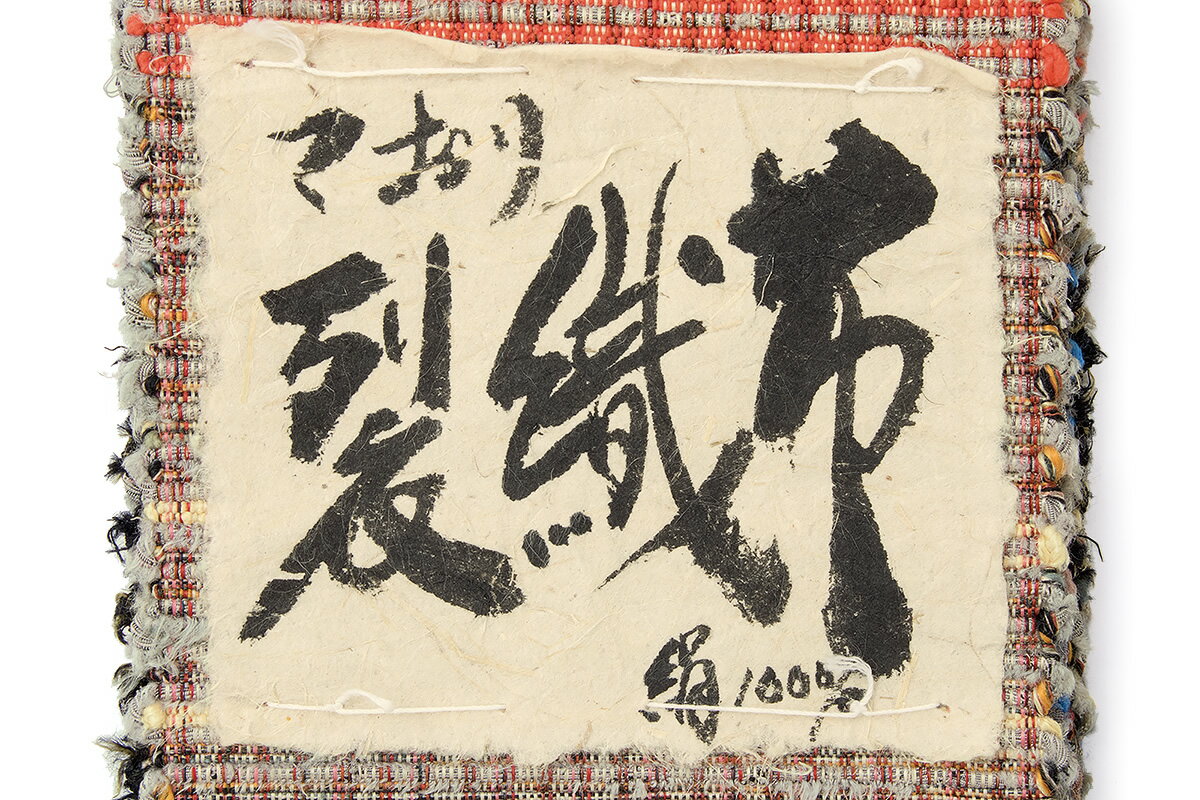 ており
裂織布
絹100%